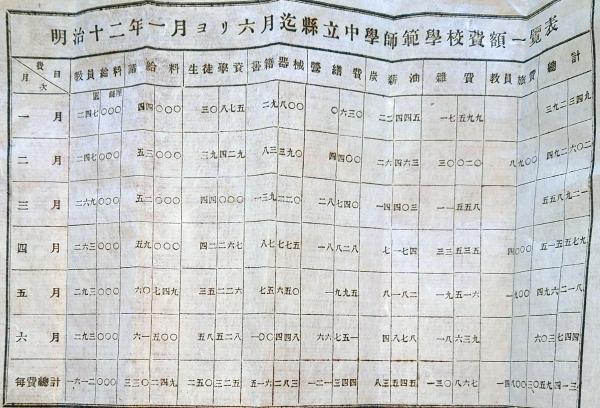 明治十二年一月ヨリ六月迄縣立中學師範學校費額一覽表
費目 月次 教員給料 諸給料 生徒學資 書籍器械 營繕費 炭薪油 雜費 教員旅費 總計
圓 錢厘
一月 二四七〇〇〇 四四〇〇〇 三〇八七五 二九八〇〇 〇六三〇 二二四四五 一七五九九 三九二三四九
二月 二四七〇〇〇 五三〇〇〇 三九四二九 八三三九〇 四四〇〇 二六四六三 三〇〇二〇 八九〇〇 四九二六〇二
三月 二六九〇〇〇 五二〇〇〇 四四〇〇〇 一三九二二〇 二八七四〇 一四四〇三 一一五五八 五五八九二一
四月 二六三〇〇〇 五九〇〇〇 四二二六七 八七七七五 一八八二八 七一七四 三三五三五 四〇〇〇 五一五五七九
五月 二九三〇〇〇 六〇七四九 三五二二六 七五六五〇 一九九五 八一八二 一九五一六 一九〇〇 四九六二一八
六月 二九三〇〇〇 六一五〇〇 五八五二八 一〇〇四四八 六六七五一 四八七八 一八六三九 六〇三七四四
每費總計 一六一二〇〇〇 三三〇二四九 二五〇三二五 五一六二八三 一二一三四四 八三五四五 一三〇八六七 一四八〇〇 三〇五九四一三